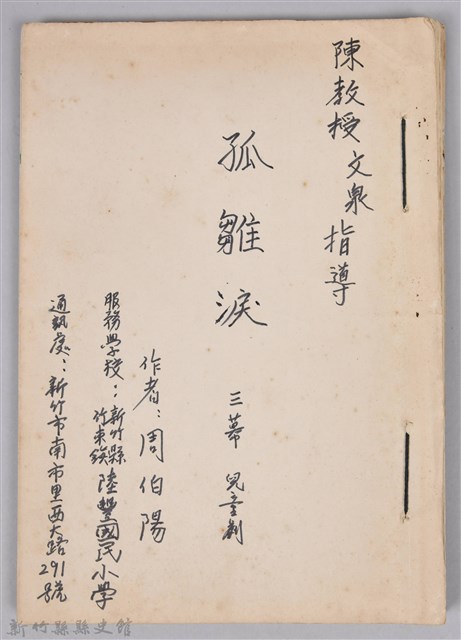 陳教授文泉指導
孤雛淚
三幕 兒童劇
作者:周伯陽
服務學校:新竹縣竹東鎮陸豐國民小學
通訊處:新竹市南市里西大路291號
新竹縣縣史館